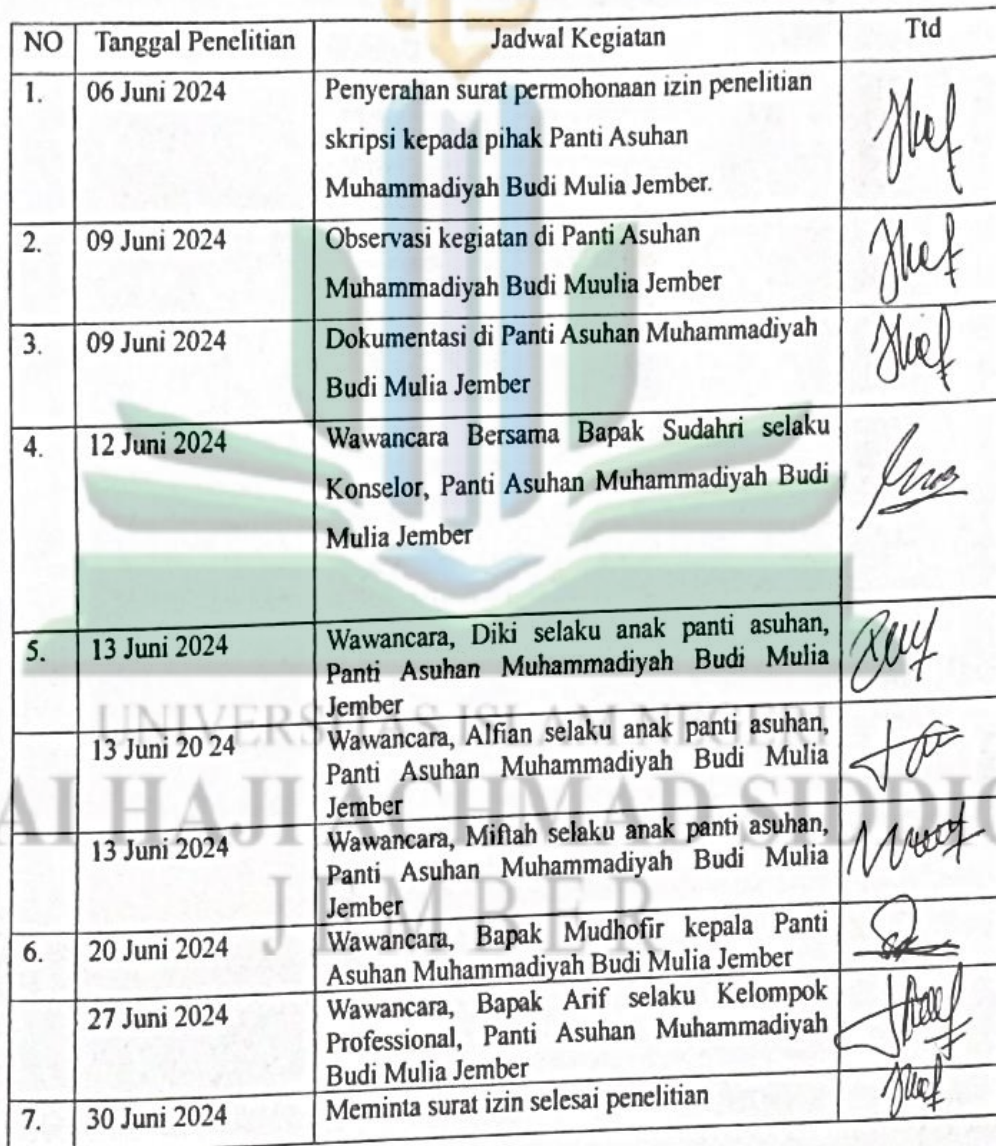 NO Tanggal Penelitian Jadwal Kegiatan Ttd
1. 06 Juni 2024 Penyerahan surat permohonaan izin penelitian
skripsi kepada pihak Panti Asuhan
Muhammadiyah Budi Mulia Jember.
2. 09 Juni 2024 Observasi kegiatan di Panti Asuhan
Muhammadiyah Budi Muulia Jember
3. 09 Juni 2024 Dokumentasi di Panti Asuhan Muhammadiyah
Budi Mulia Jember
4. 12 Juni 2024 Wawancara Bersama Bapak Sudahri selaku
Konselor, Panti Asuhan Muhammadiyah Budi
Mulia Jember
5. 13 Juni 2024 Wawancara, Diki selaku anak panti asuhan,
Panti Asuhan Muhammadiyah Budi Mulia
Jember
13 Juni 20 24 Wawancara, Alfian selaku anak panti asuhan,
Panti Asuhan Muhammadiyah Budi Mulia
Jember
13 Juni 2024 Wawancara, Miftah selaku anak panti asuhan,
Panti Asuhan Muhammadiyah Budi Mulia
Jember
6. 20 Juni 2024 Wawancara, Bapak Mudhofir kepala Panti
Asuhan Muhammadiyah Budi Mulia Jember
27 Juni 2024 Wawancara, Bapak Arif selaku Kelompok
Professional, Panti Asuhan Muhammadiyah
Budi Mulia Jember
7. 30 Juni 2024 Meminta surat izin selesai penelitian
UNIVERSITAS ISLAM NEGERI
AI HAJI ACHMAD SIDDIQ
JEMBER